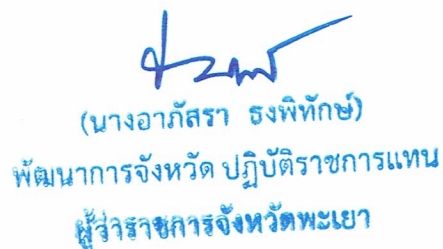 (นางอาภัสรา ธงพิทักษ์)
พัฒนาการจังหวัด ปฏิบัติราชการแทน
ผู้ว่าราชการจังหวัดพะเยา